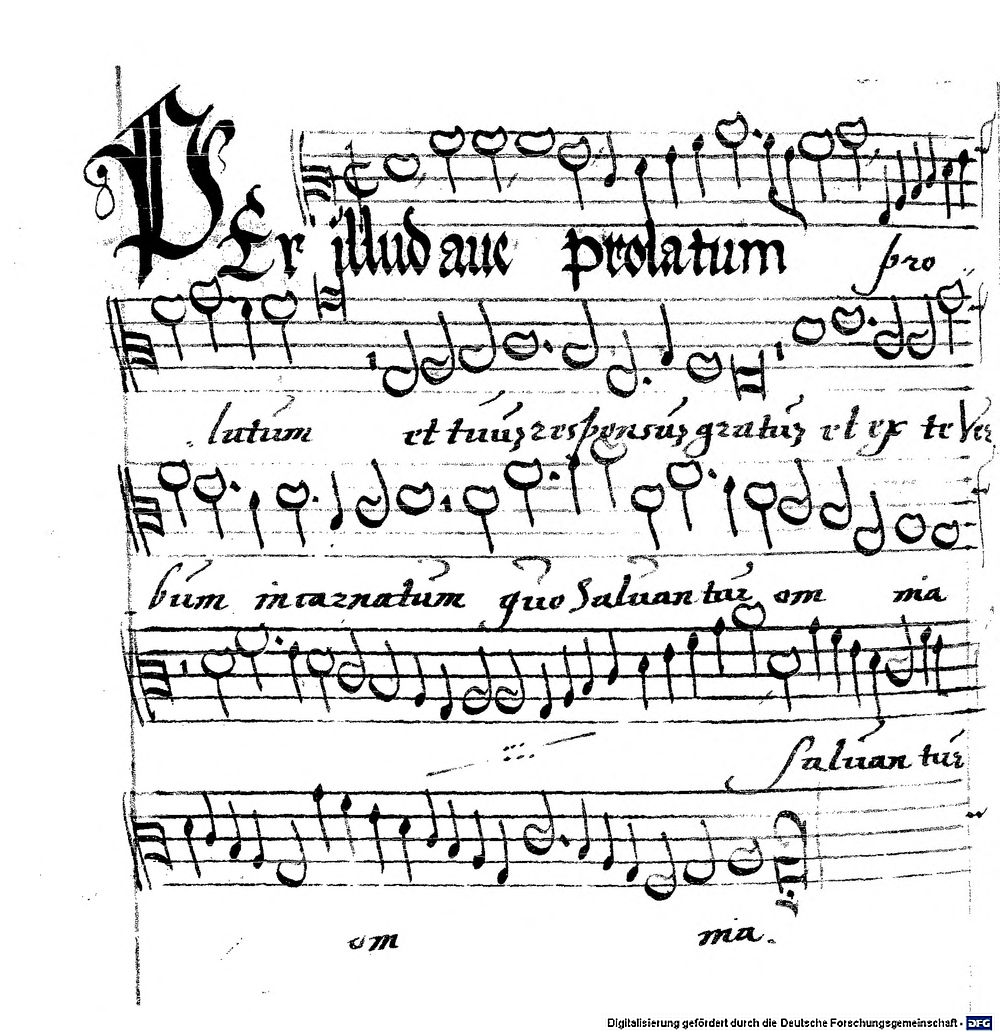 PEr illud aue prolatum pro
latum et tuuʒ responsuʒ gratuʒ et ex te Ver
bum incarnatum quo saluantur omnia
saluantur
omnia.
Digitalisierung gefördert durch die Deutsche Forschungsgemeinschaft - DFG